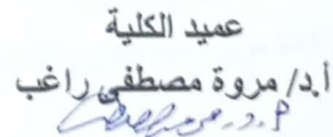 عميد الكلية
أ.د/ مروة مصطفى راغب